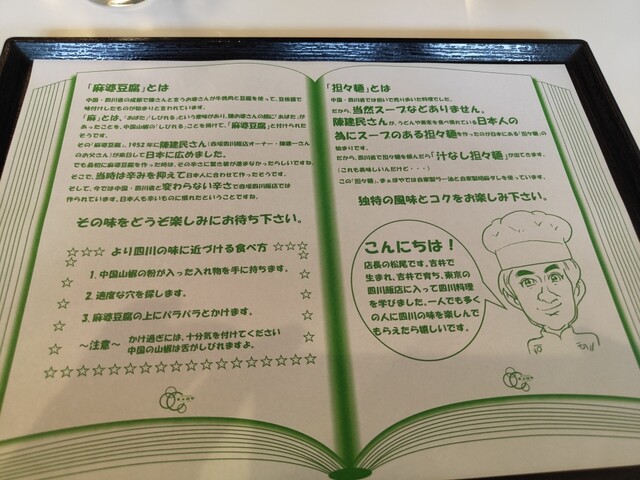 「麻婆豆腐」とは
中国・四川省の成都で陳さんと言うお婆さんが牛挽肉と豆腐を使って、豆板醤で
味付けしたものが始まりと言われています。
「麻」とは、「あばた/しびれる」という意味があり、陳お婆さんの顔に「あばた」が
あったことを、中国山椒の「しびれる」ことを掛けて、「麻婆豆腐」と付けられた
そうです。
その「麻婆豆腐」、1952年に陳建民さん(赤坂四川飯店オーナー・陳建一さん
のお父さん)が来日して日本に広めました。
でも最初に麻婆豆腐を作った時は、その辛さに驚き箸が進まなかったらしいですね。
そこで、当時は辛みを抑えて日本人に合わせて作ったそうです。
そして、今では中国・四川省と変わらない辛さで赤坂四川飯店では
作られています。日本人も辛いものに慣れたということですね。
その味をどうぞ楽しみにお待ち下さい。
☆☆☆ より四川の味に近づける食べ方 ☆☆☆
1. 中国山椒の粉が入った入れ物を手に持ちます。
2. 適度な穴を探します。
3. 麻婆豆腐の上にパラパラとかけます。
～注意～ かけ過ぎには、十分気を付けてください
中国の山椒は舌がしびれますよ。
「担々麺」とは
中国・四川省では担いで売り歩いた料理でした。
だから、当然スープなどありません。
陳建民さんが、うどんや蕎麦を食べ慣れている日本人の
為にスープのある担々麺を作ったのが日本にある「担々麺」の
始まりです。
だから、四川省で担々麺を頼んだら「汁なし担々麺」が出てきます。
(これも美味しいんだけど・・・)
この「担々麺」、まぁぼやでは自家製ラー油と自家製胡麻ダレを使っています。
独特の風味とコクをお楽しみ下さい。
こんにちは！
店長の松尾です。吉井で
生まれ、吉井で育ち、東京の
四川飯店に入って四川料理
を学びました。一人でも多く
の人に四川の味を楽しんで
もらえたら嬉しいです。